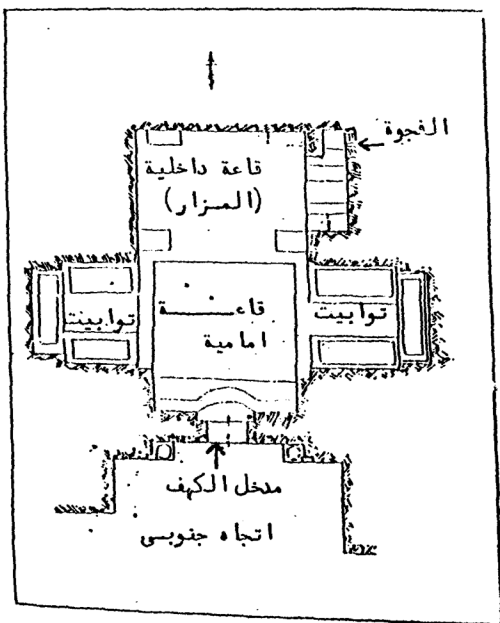 الفجوة
قاعة داخلية
(المزار)
توابيت
قاعة
توابيت
امامية
مدخل الكهف
اتجاه جنوبى